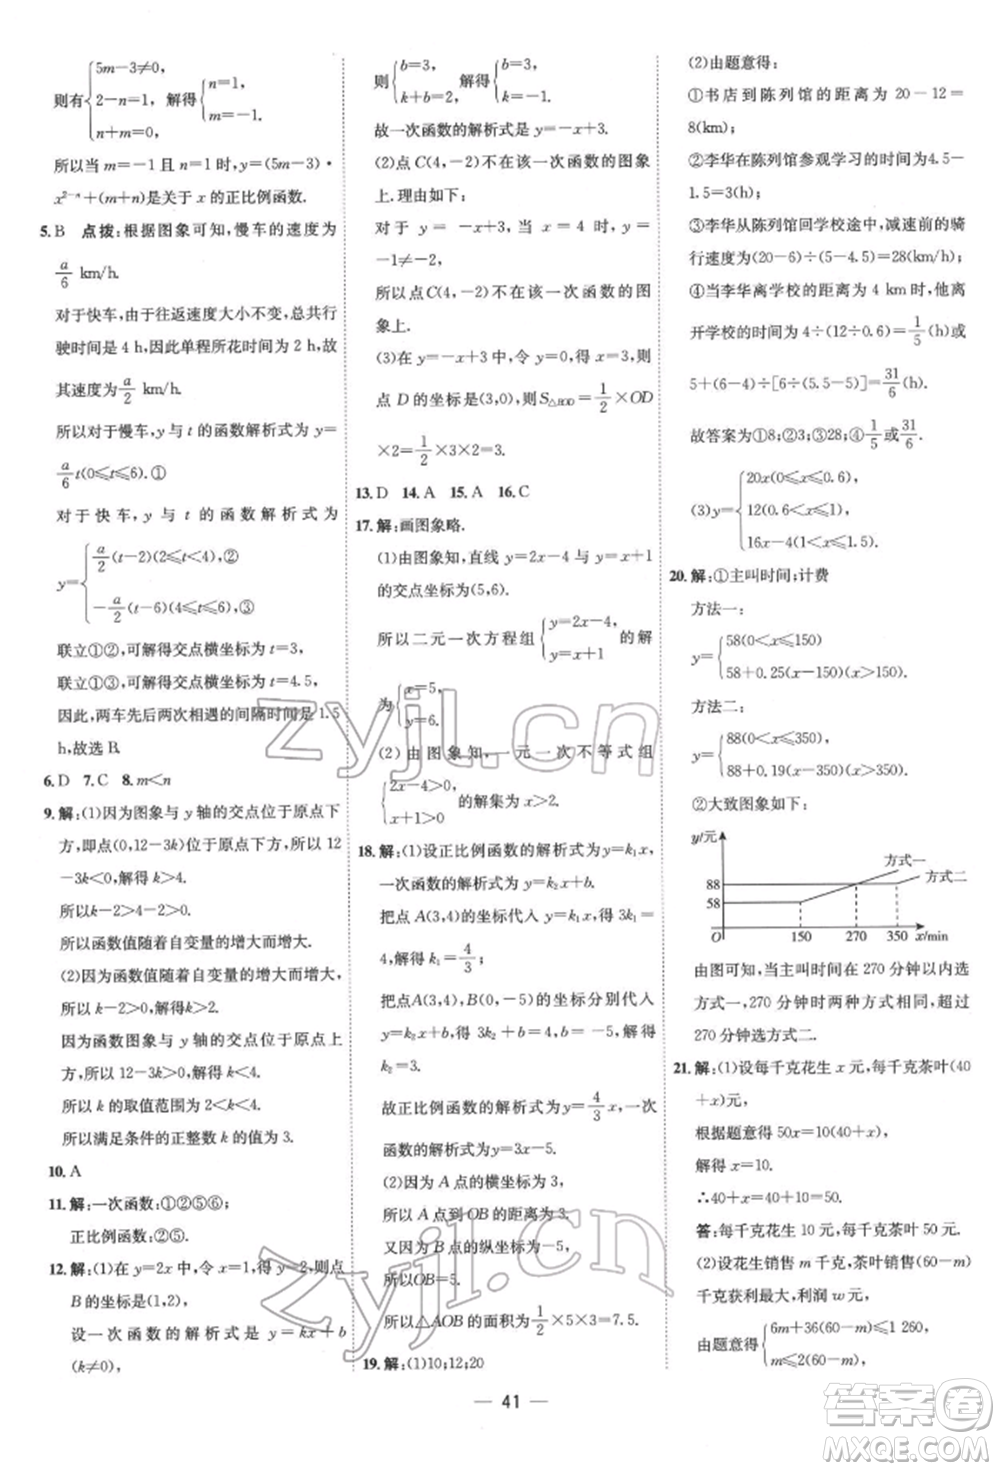 则有{5m-3≠0, 2-n=1, n+m=0, 解得{n=1, m=-1.
所以当 m=-1 且 n=1 时,y=(5m-3)·
x²⁻ⁿ+(m+n)是关于 x 的正比例函数.
5. B 点拨:根据图象可知,慢车的速度为
a/6 km/h.
对于快车,由于往返速度大小不变,总共行
驶时间是 4 h,因此单程所花时间为 2 h,故
其速度为 a/2 km/h.
所以对于慢车,y 与 t 的函数解析式为 y=
a/6 t(0≤t≤6).①
对于快车,y 与 t 的函数解析式为
y={a/2(t-2)(2≤t<4),②
-a/2(t-6)(4≤t≤6),③
联立①②,可求得交点横坐标为 t=3,
联立①③,可求得交点横坐标为 t=4.5,
因此,两车先后两次相遇的间隔时间是 1.5
h,故选 B.
6. D 7. C 8. m<n
9. 解:(1)因为图象与 y 轴的交点位于原点下
方,即点(0,12-3k)位于原点下方,所以 12
-3k<0,解得 k>4.
所以 k-2>4-2>0.
所以函数值随着自变量的增大而增大.
(2)因为函数值随着自变量的增大而增大,
所以 k-2>0,解得 k>2.
因为函数图象与 y 轴的交点位于原点上
方,所以 12-3k>0,解得 k<4.
所以 k 的取值范围为 2<k<4.
所以满足条件的正整数 k 的值为 3.
10. A
11. 解:一次函数:①②⑤⑥;
正比例函数:②⑤.
12. 解:(1)在 y=2x 中,令 x=1,得 y=2,则点
B 的坐标是(1,2),
设一次函数的解析式是 y=kx+b
(k≠0),
则{b=3, k+b=2, 解得{b=3, k=-1.
故一次函数的解析式是 y=-x+3.
(2)点 C(4,-2)不在该一次函数的图象
上.理由如下:
对于 y=-x+3,当 x=4 时,y=
-1≠-2,
所以点 C(4,-2)不在该一次函数的图
象上.
(3)在 y=-x+3 中,令 y=0,得 x=3,则
点 D 的坐标是(3,0),S△BOD=1/2×OD
×2=1/2×3×2=3.
13. D 14. A 15. A 16. C
17. 解:画图象略.
(1)由图象知,直线 y=2x-4 与 y=x+1
的交点坐标为(5,6).
所以二元一次方程组{y=2x-4, y=x+1 的解
为{x=5, y=6.
(2)由图象知,一元一次不等式组
{2x-4>0, x+1>0 的解集为 x>2.
18. 解:(1)设正比例函数的解析式为 y=k₁x,
一次函数的解析式为 y=k₂x+b.
把点 A(3,4)的坐标代入 y=k₁x,得 3k₁=
4,解得 k₁=4/3;
把点 A(3,4),B(0,-5)的坐标分别代入
y=k₂x+b,得 3k₂+b=4,b=-5,解得
k₂=3.
故正比例函数的解析式为 y=4/3x,一次
函数的解析式为 y=3x-5.
(2)因为 A 点的横坐标为 3,
所以 A 点到 OB 的距离为 3.
又因为 B 点的纵坐标为-5,
所以OB=5.
所以△AOB 的面积为 1/2×5×3=7.5.
19. 解:(1)10;12;20
(2)由题意得:
①书店到陈列馆的距离为 20-12=
8(km);
②李华在陈列馆参观学习的时间为4.5-
1.5=3(h);
③李华从陈列馆回学校途中,减速前的骑
行速度为(20-6)÷(5-4.5)=28(km/h);
④当李华离学校的距离为 4 km 时,他离
开学校的时间为 4÷(12÷0.6)=1/5(h)或
5+(6-4)÷[6÷(5.5-5)]=31/6(h).
故答案为①8;②3;③28;④1/5或31/6.
(3)y={20x(0≤x≤0.6),
12(0.6<x≤1),
16x-4(1<x≤1.5).
20. 解:①主叫时间;计费
方法一:
y={58(0<x≤150)
58+0.25(x-150)(x>150).
方法二:
y={88(0<x≤350)
88+0.19(x-350)(x>350).
②大致图象如下:
y/元
方式一
方式二
88
58
O 150 270 350 x/min
由图可知,当主叫时间在 270 分钟以内选
方式一,270 分钟时两种方式相同,超过
270 分钟选方式二.
21. 解:(1)设每千克花生 x 元,每千克茶叶(40
+x)元,
根据题意得 50x=10(40+x),
解得 x=10.
∴40+x=40+10=50.
答:每千克花生 10 元,每千克茶叶 50 元.
(2)设花生销售 m 千克,茶叶销售(60-m)
千克获利最大,利润 w 元.
由题意得{6m+36(60-m)≤1 260,
m≤2(60-m),
41
zyjl.cn
zyjl.cn
答案圈
MXQE.COM